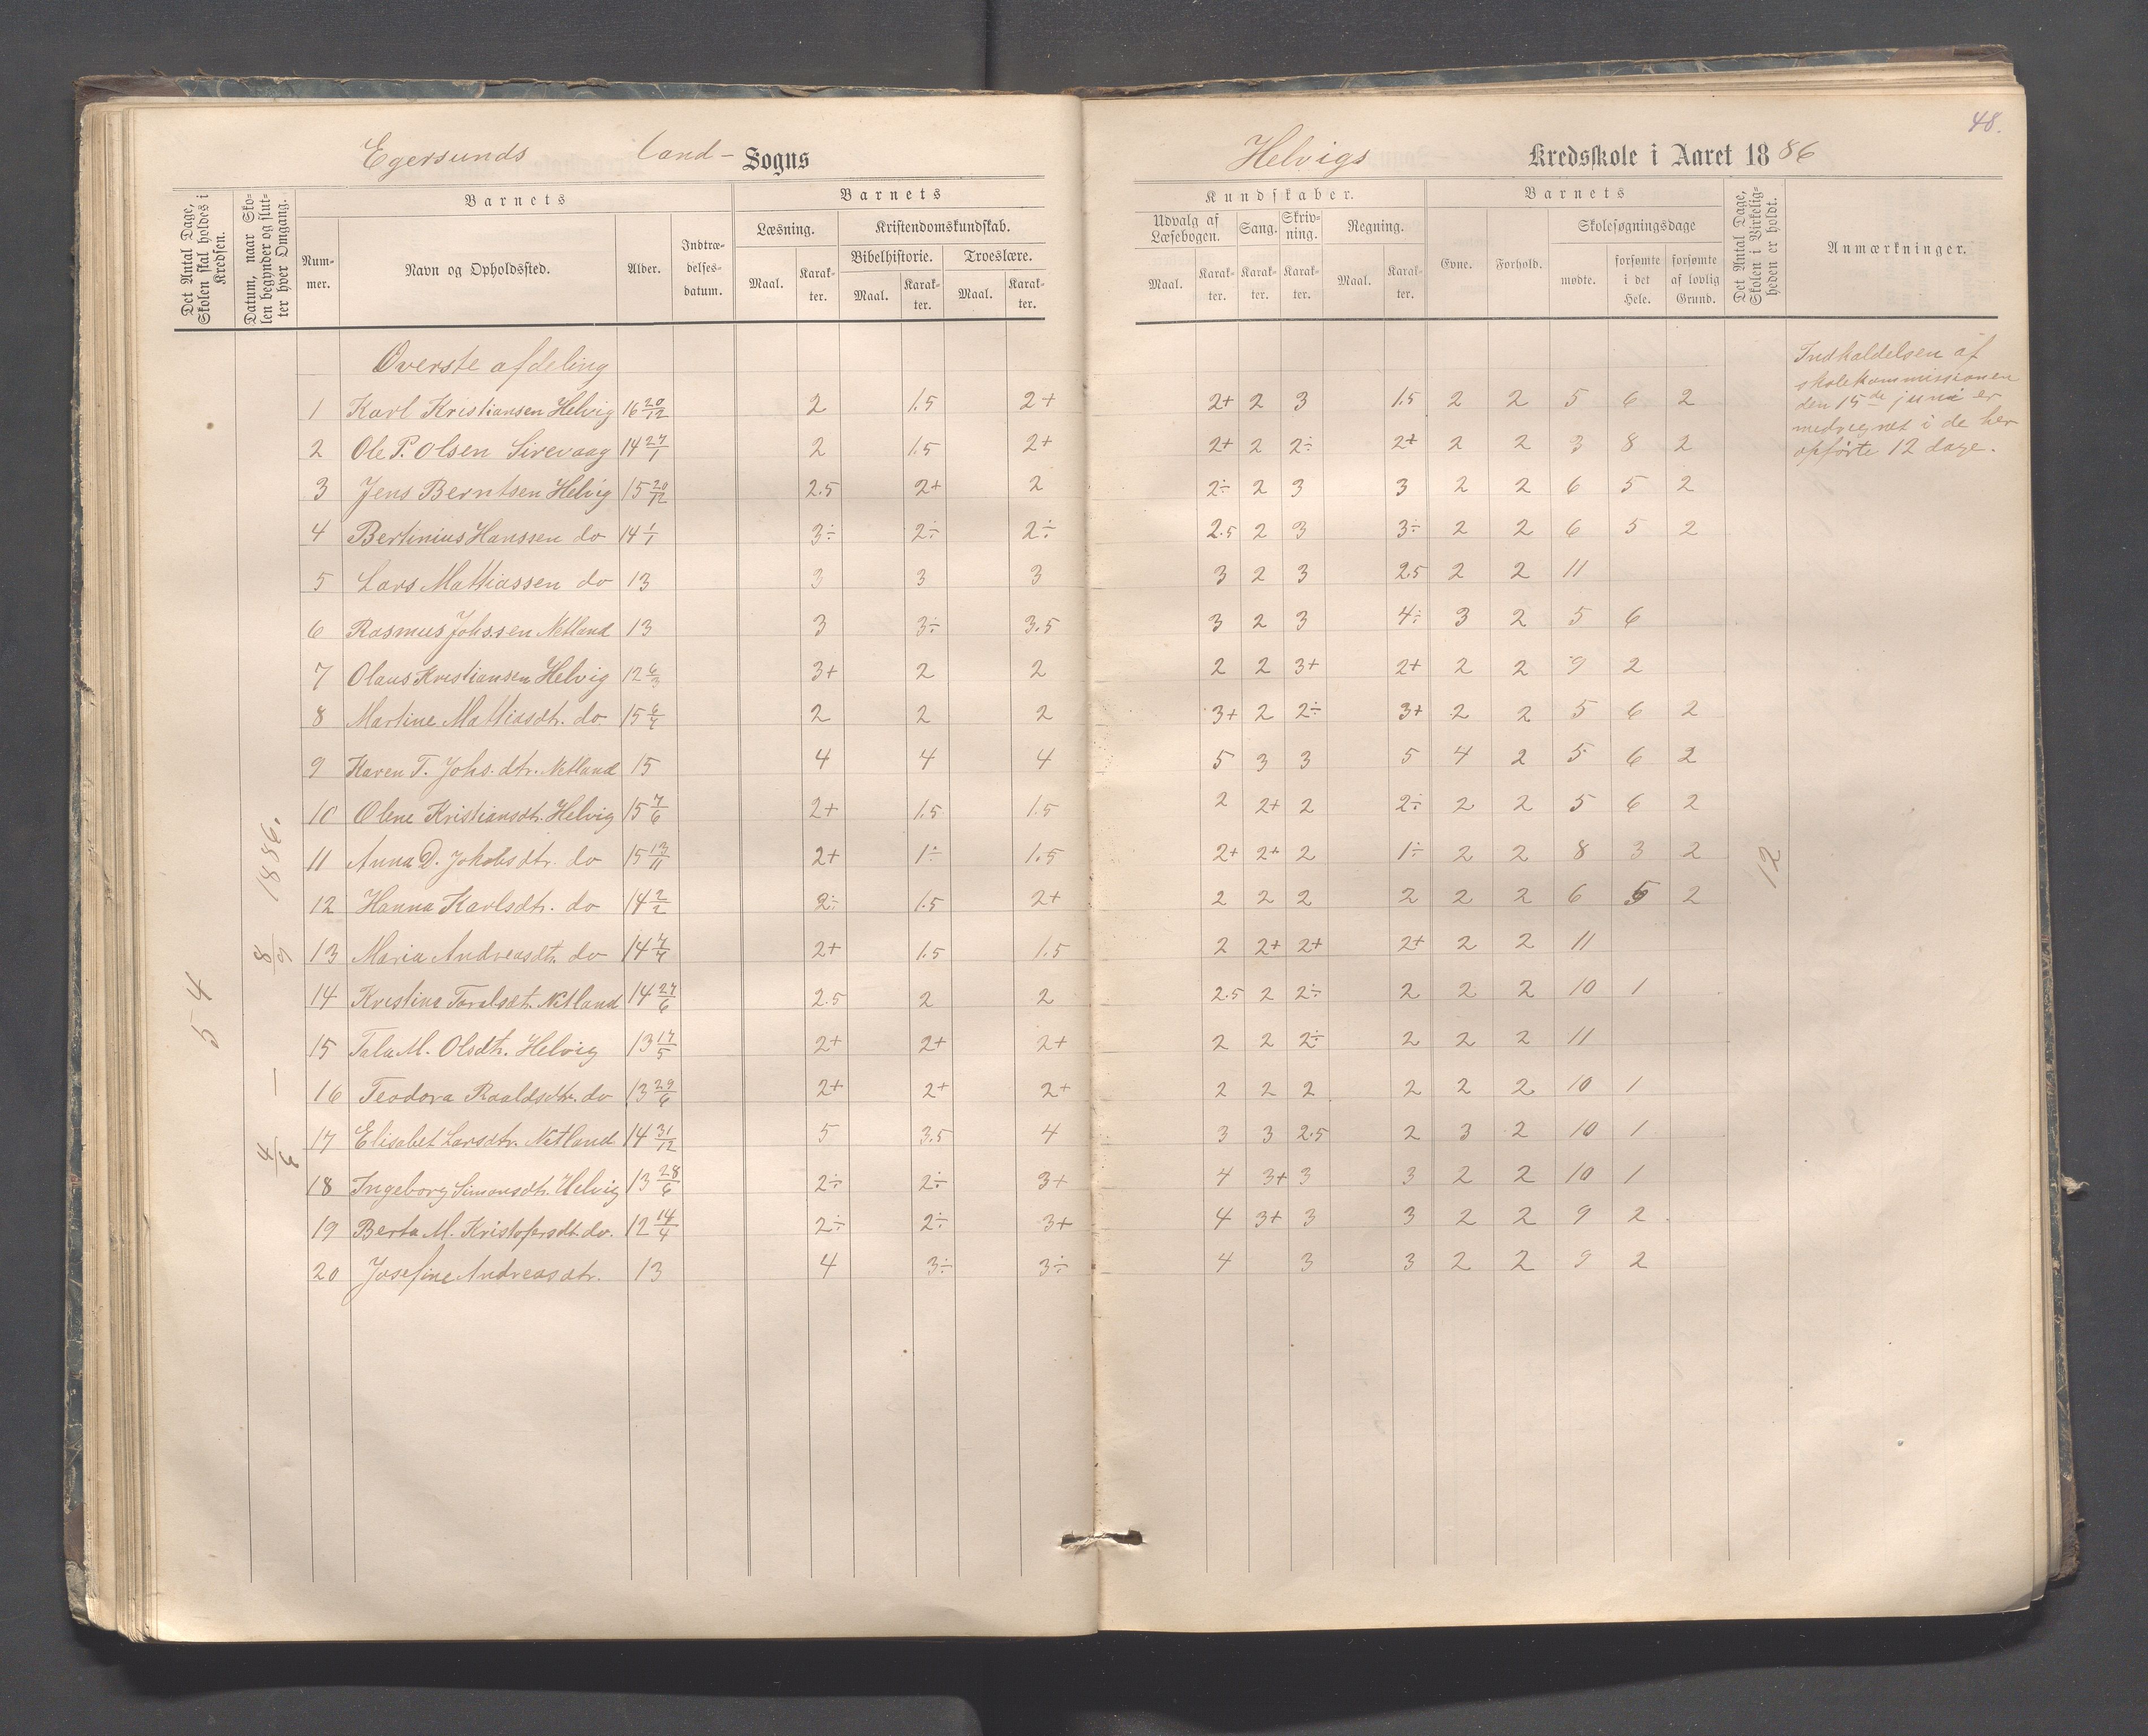 48.
Egersunds land- Sogns
Helvigs Kredsskole i Aaret 1886
Det Antal Dage, Skolen skal holdes i Kredsen.
Datum, naar Skolen begynder og slutter hver Omgang.
Barnets
Nummer.
Navn og Opholdssted.
Alder.
Indtrædelsesdatum.
Barnets
Læsning.
Kristendomskundskab.
Bibelhistorie.
Troeslære.
Maal. Karakter. Maal. Karakter. Maal. Karakter.
Kundskaber.
Udvalg af Læsebogen.
Sang.
Skrivning.
Regning.
Maal. Karakter. Karakter. Karakter. Maal. Karakter.
Barnets
Evne.
Forhold.
Skolesøgningsdage
mødte.
forsømte i det Hele.
forsømte af lovlig Grund.
Det Antal Dage, Skolen i Virkeligheden er holdt.
Anmærkninger.
54
4/6 — 8/9 1886.
Øverste afdeling
1 Karl Kristiansen Helvig 16 20/12 2 1.5 2+ 2+ 2 3 1.5 2 2 5 6 2
2 Ole P. Olsen Sirevaag 14 27/1 2 1.5 2+ 2+ 2 2÷ 2+ 2 2 3 8 2
3 Jens Berntsen Helvig 15 20/12 2.5 2+ 2 2÷ 2 3 3 2 2 6 5 2
4 Bertinius Hanssen do 14 1/1 3÷ 2÷ 2÷ 2.5 2 3 3÷ 2 2 6 5 2
5 Lars Mathiassen do 13 3 3 3 3 2 3 2.5 2 2 11
6 Rasmus Johssen Netland 13 3 3÷ 3.5 3 2 3 4÷ 3 2 5 6
7 Olaus Kristiansen Helvig 12 6/3 3+ 2 2 2 2 3+ 2+ 2 2 9 2
8 Martine Mathiasdt. do 15 6/7 2 2 2 3+ 2 2÷ 3+ 2 2 5 6 2
9 Karen T. Johs.dtr. Netland 15 4 4 4 5 3 3 5 4 2 5 6 2
10 Olene Kristiansdt. Helvig 15 7/6 2+ 1.5 1.5 2 2+ 2 2÷ 2 2 5 6 2
11 Anna D. Jakobsdtr. do 15 13/11 2+ 1÷ 1.5 2+ 2+ 2 1÷ 2 2 8 3 2
12 Hanna Karlsdt. do 14 2/2 2÷ 1.5 2+ 2 2 2 2 2 2 6 5 2
13 Maria Andreasdt. do 14 7/7 2+ 1.5 1.5 2 2+ 2+ 2+ 2 2 11
14 Kristina Toralsdt. Netland 14 27/6 2.5 2 2 2.5 2 2÷ 2 2 2 10 1
15 Tala M. Olsdt. Helvig 13 17/5 2+ 2+ 2+ 2 2 2÷ 2 2 2 11
16 Teodora Roaldsdtr. do 13 29/6 2+ 2+ 2+ 2 2 2 2 2 2 10 1
17 Elisabet Larsdtr. Netland 14 31/12 5 3.5 4 3 3 2.5 2 3 2 10 1
18 Ingeborg Simonsdt. Helvig 13 28/6 2÷ 2÷ 3+ 4 3+ 3 3 2 2 10 1
19 Berta M. Kristofersdt. do. 12 14/4 2÷ 2÷ 3+ 4 3+ 3 3 2 2 9 2
20 Josefine Andreasdtr. 13 4 3÷ 3÷ 4 3 3 2 2 9 2
12
Indkaldelsen af
skolekommissionen
den 15de juni er
medregnet i de her
opførte 12 dage.